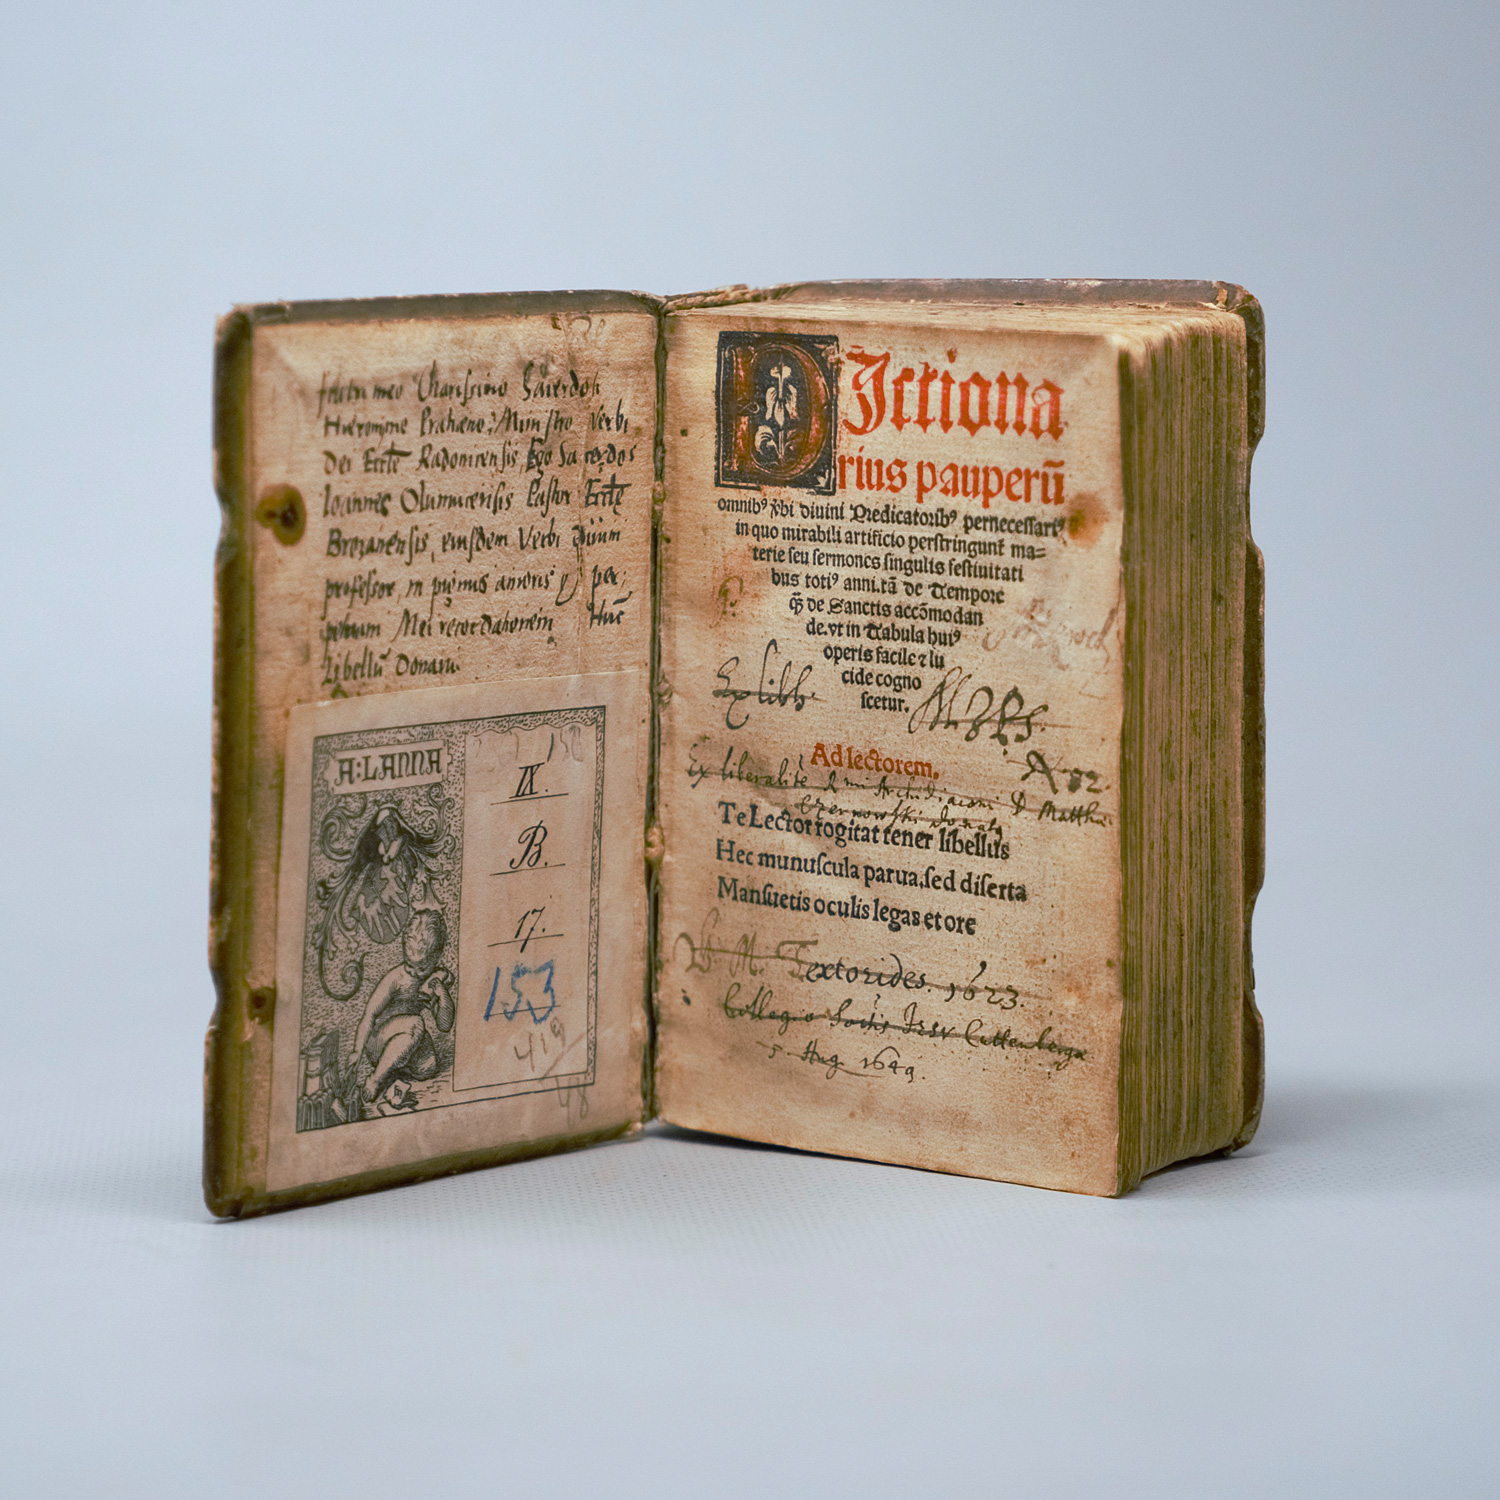 fratri meo Charissimo Sacerdoti
Hieronymo Prahæno, Ministro Verbi
Dei Eccłe Radomicensis, Ego Sacerdos
Ioannes Olumucensis Pastor Eccłe
Brezanensis, eiusdem Verbi diuini
professor, in pignus amoris et per,
petuam Mei recordationem Hūc
Libellū Donaui.
A:LANNA
IX.
B.
17.
153
419
DIctiona
rius pauperū
omnibꝰ ꝟbi diuini Predicatoribꝰ perneceſſariꝰ
in quo mirabili artificio perſtringunt̃ ma=
terie ſeu ſermones ſingulis feſtiuitati
bus totiꝰ anni.tã de Tempore
q̃ȝ de Sanctis accõmodan
de.vt in Tabula huiꝰ
operis facile ⁊ lu
cide cogno
ſcetur.
Ex libh.
A 82.
Ad lectorem.
Ex liberalite R mi Archidiaconi D Matthi
Czernowski donatꝰ
Te Lector rogitat tener libellus
Hec munuſcula parua,ſed diſerta
Manſuetis oculis legas et ore
M. Textorides. 1623.
Collegio Soctis Iesv Cuttenbergæ
5 Aug 1649.